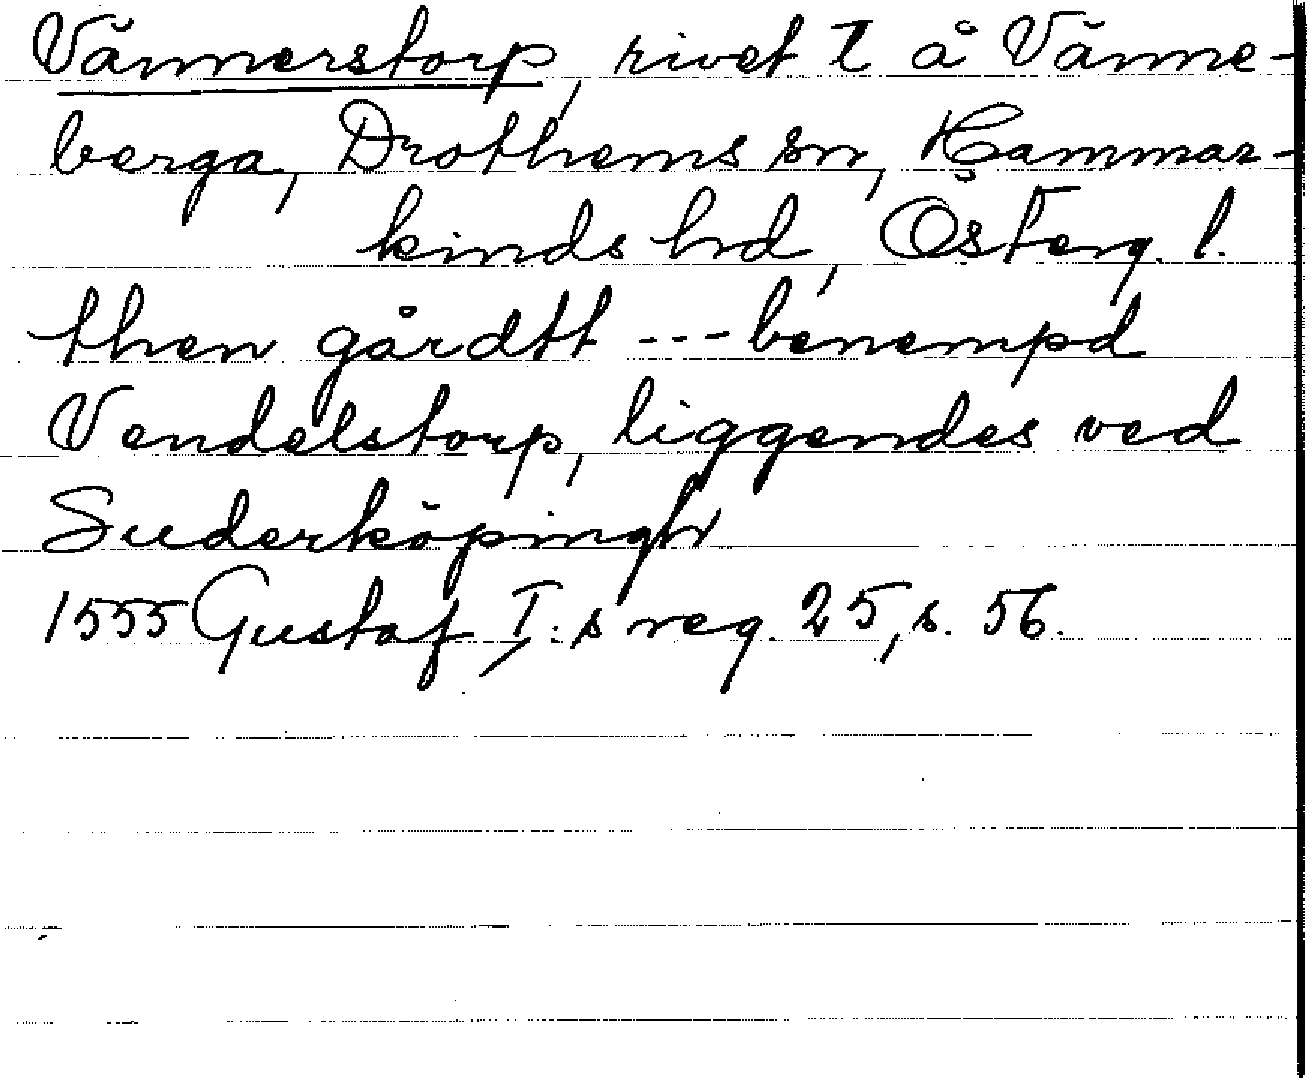 Vännerstorp, rivet T å Vänne-
berga, Drothems sn, Hammar-
kinds hd, Österg. l.
then gårdtt --- benempd
Vendelstorp, liggendes ved
Suderköpingh
1555 Gustaf I:s reg. 25, s. 56.